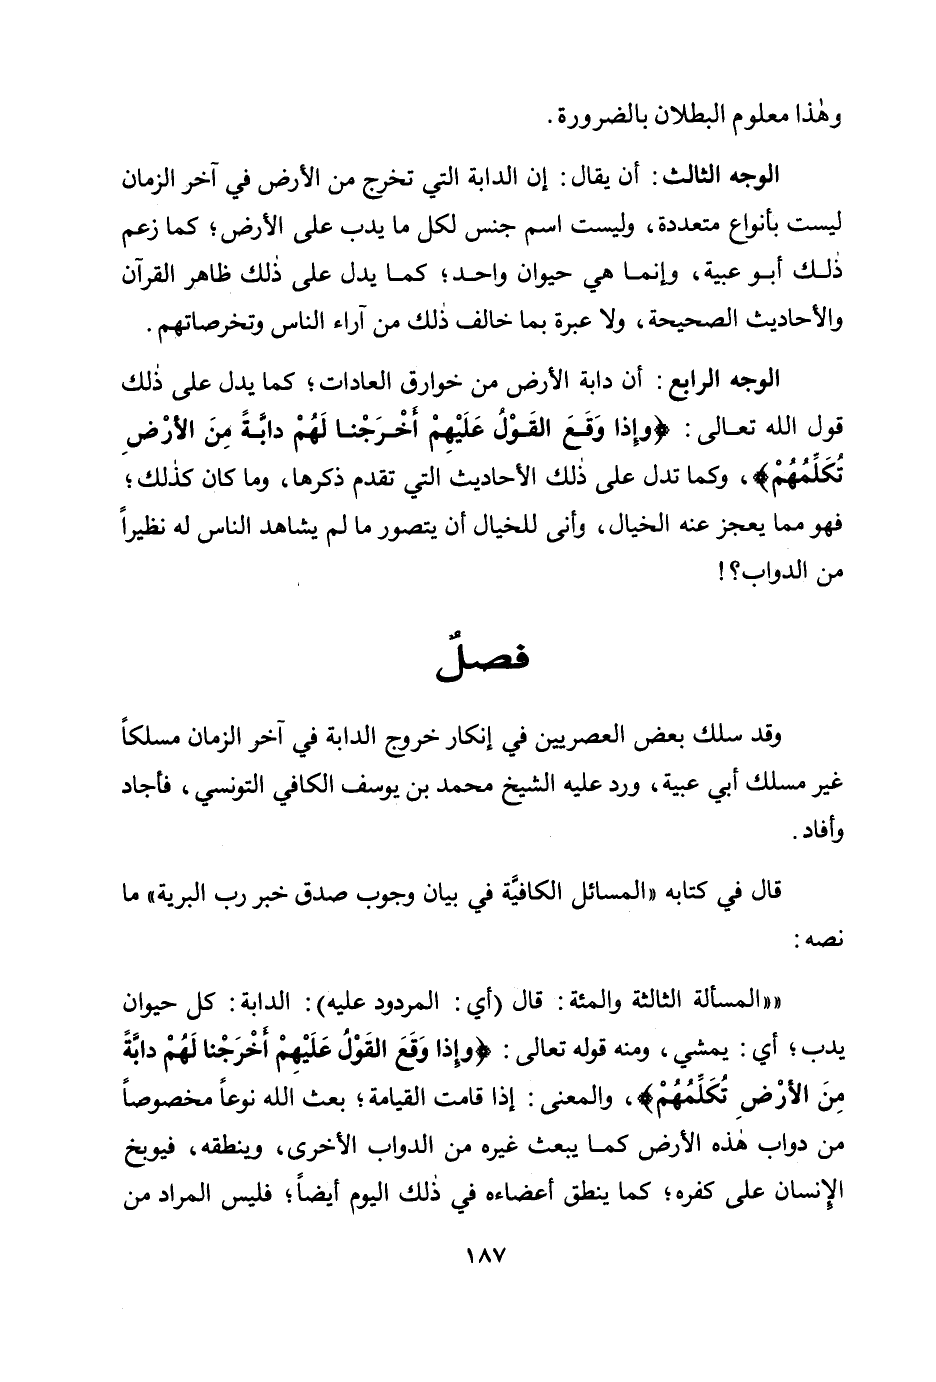 وهٰذا معلوم البطلان بالضرورة.
الوجه الثالث: أن يقال: إن الدابة التي تخرج من الأرض في آخر الزمان
ليست بأنواع متعددة، وليست اسم جنس لكل ما يدب على الأرض؛ كما زعم
ذٰلك أبو عبية، وإنما هي حيوان واحد؛ كما يدل على ذٰلك ظاهر القرآن
والأحاديث الصحيحة، ولا عبرة بما خالف ذٰلك من آراء الناس وتخرصاتهم.
الوجه الرابع: أن دابة الأرض من خوارق العادات؛ كما يدل على ذٰلك
قول الله تعالى: ﴿وإذا وَقَعَ القَوْلُ عَلَيْهِمْ أَخْرَجْنا لَهُمْ دابَّةً مِنَ الأرْضِ
تُكَلِّمُهُمْ﴾، وكما تدل على ذٰلك الأحاديث التي تقدم ذكرها، وما كان كذٰلك؛
فهو مما يعجز عنه الخيال، وأنى للخيال أن يتصور ما لم يشاهد الناس له نظيراً
من الدواب؟!
فصلٌ
وقد سلك بعض العصريين في إنكار خروج الدابة في آخر الزمان مسلكاً
غير مسلك أبي عبية، ورد عليه الشيخ محمد بن يوسف الكافي التونسي، فأجاد
وأفاد.
قال في كتابه «المسائل الكافيَّة في بيان وجوب صدق خبر رب البرية» ما
نصه:
««المسألة الثالثة والمئة: قال (أي: المردود عليه): الدابة: كل حيوان
يدب؛ أي: يمشي، ومنه قوله تعالى: ﴿وإذا وَقَعَ القَوْلُ عَلَيْهِمْ أَخْرَجْنا لَهُمْ دابَّةً
مِنَ الأرْضِ تُكَلِّمُهُمْ﴾، والمعنى: إذا قامت القيامة؛ بعث الله نوعاً مخصوصاً
من دواب هٰذه الأرض كما يبعث غيره من الدواب الأخرى، وينطقه، فيوبخ
الإِنسان على كفره؛ كما ينطق أعضاءه في ذٰلك اليوم أيضاً؛ فليس المراد من
١٨٧